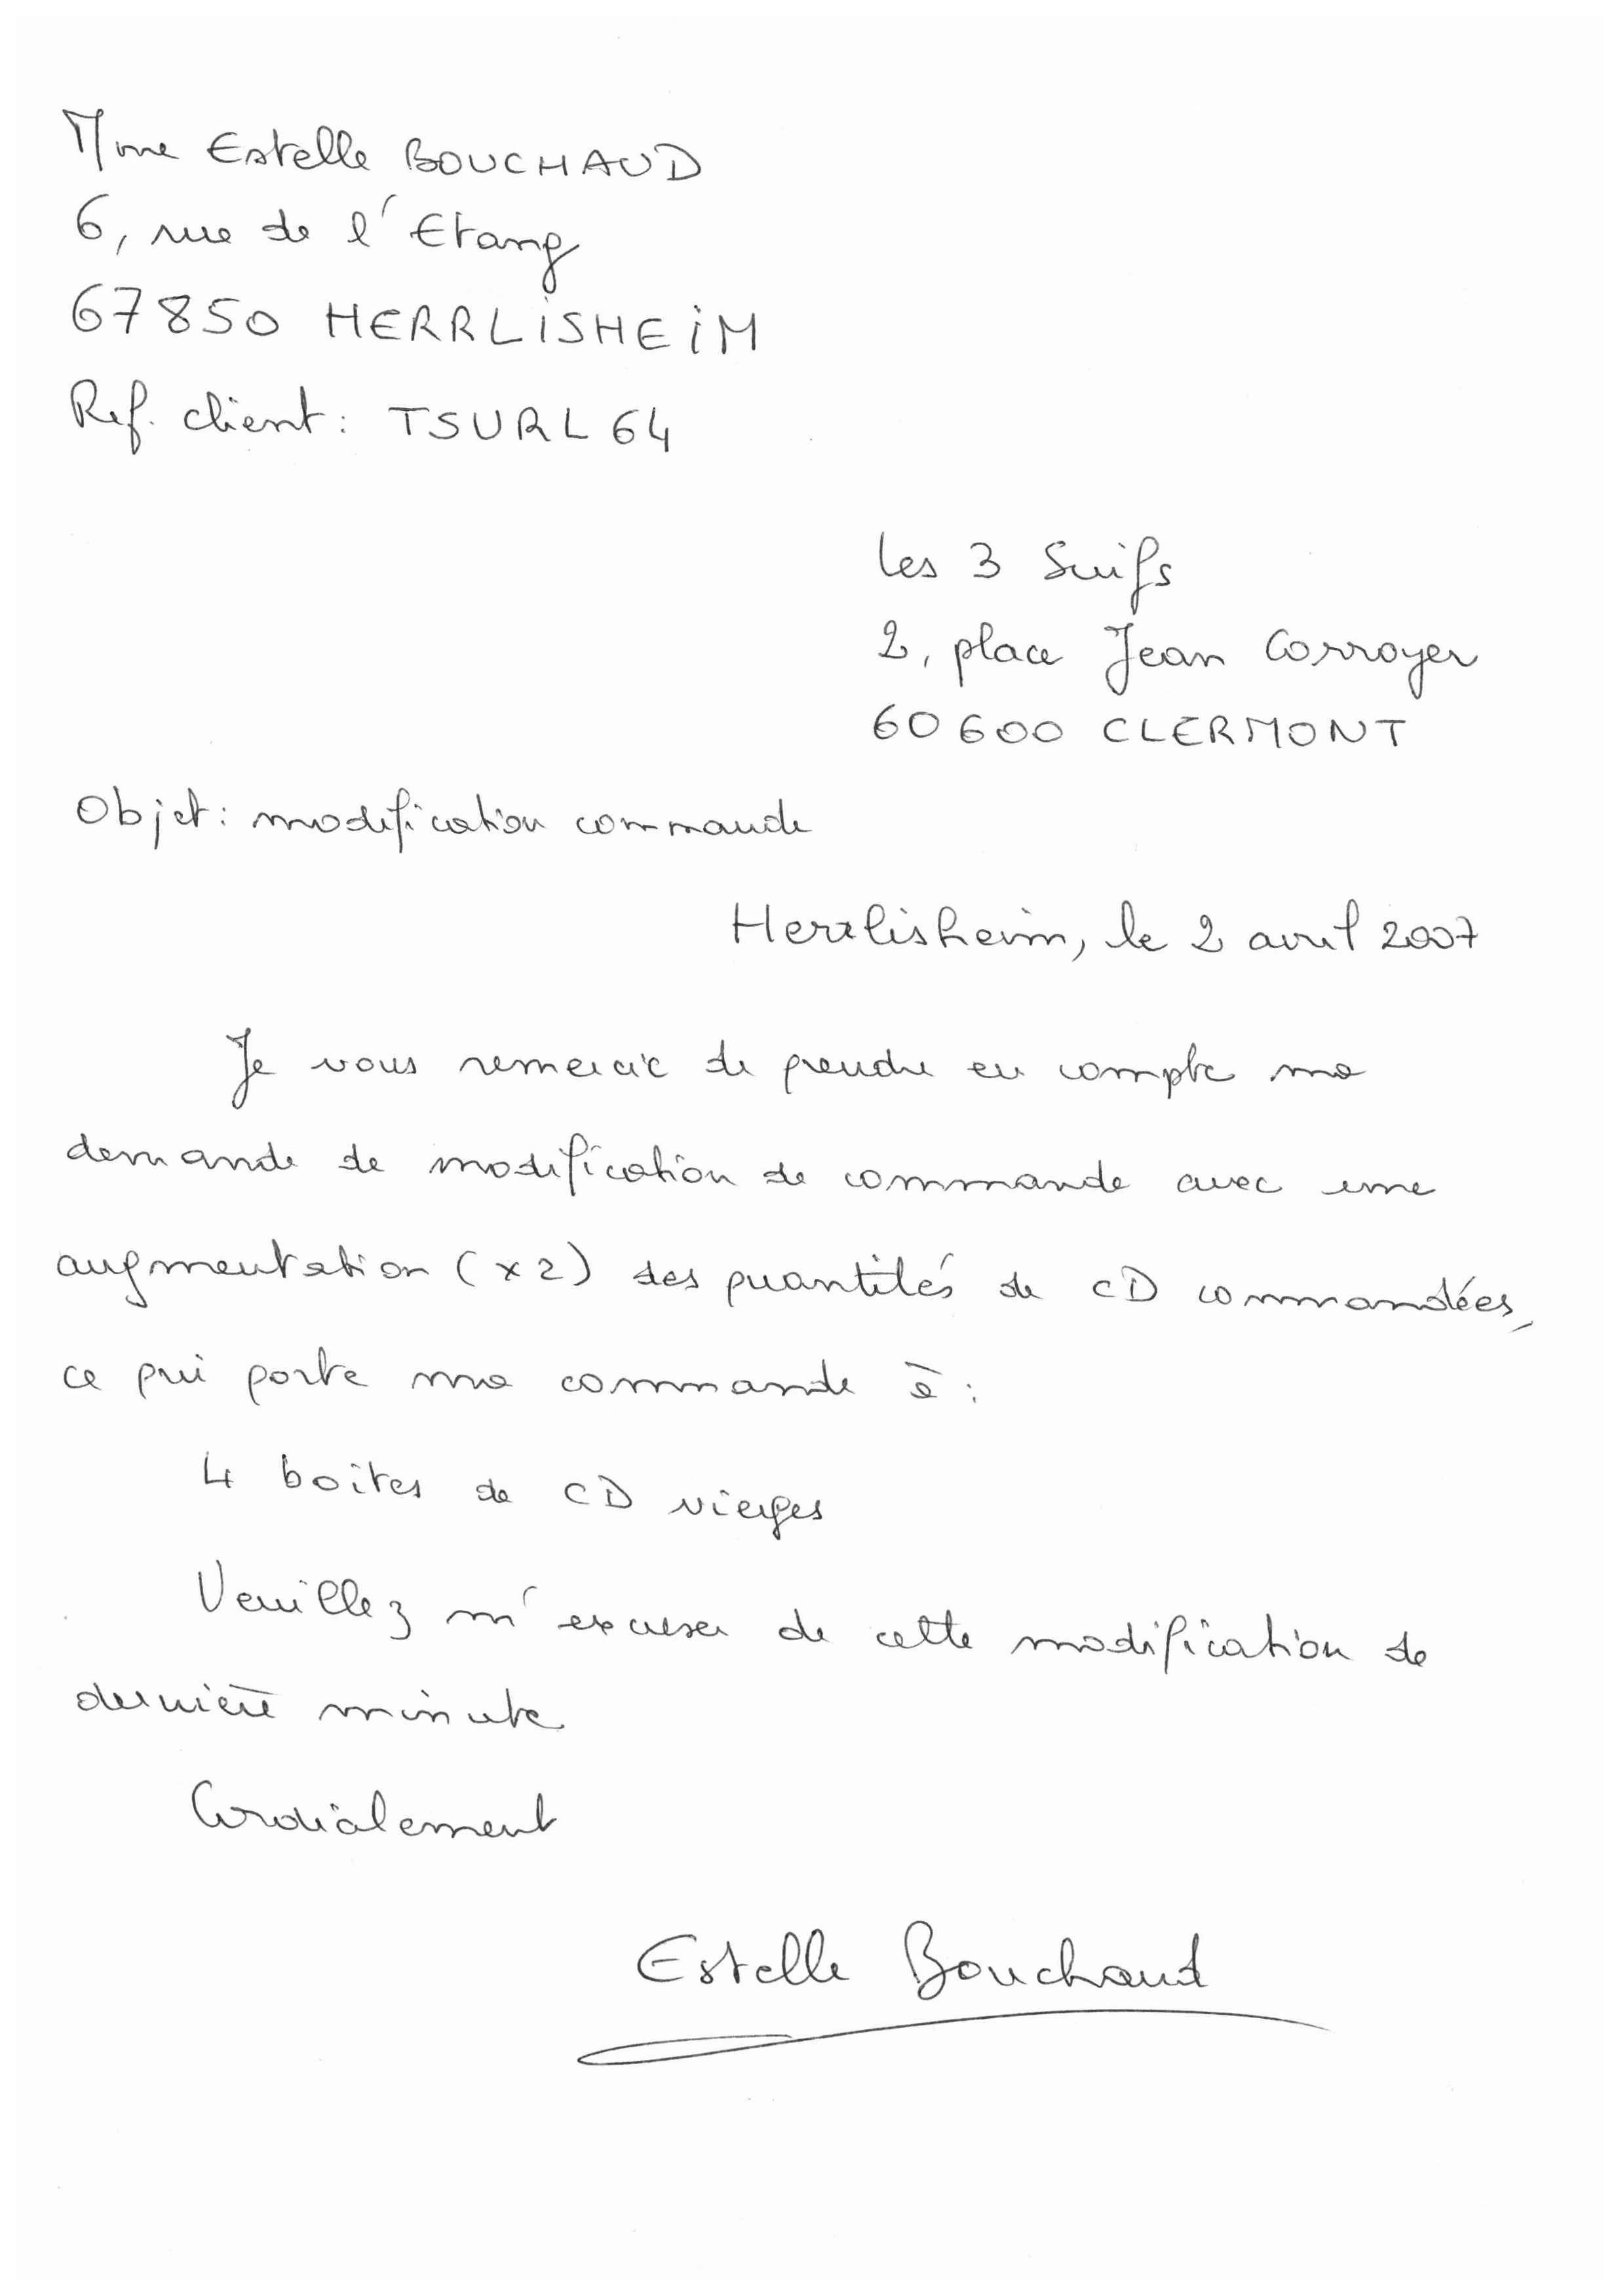 Mme Estelle BOUCHAUD
6, rue de l'Etang
67850 HERRLISHEIM
Ref. client : TSURL64
Les 3 Suifs
2, place Jean Corroyer
60600 CLERMONT
Objet : modification commande
Herrlisheim, le 2 avril 2007
Je vous remercie de prendre en compte ma
demande de modification de commande avec une
augmentation (x2) des quantités de CD commandées,
ce qui porte ma commande à :
4 boites de CD vierges
Veuillez m'excuser de cette modification de
dernière minute
Cordialement
Estelle Bouchaud